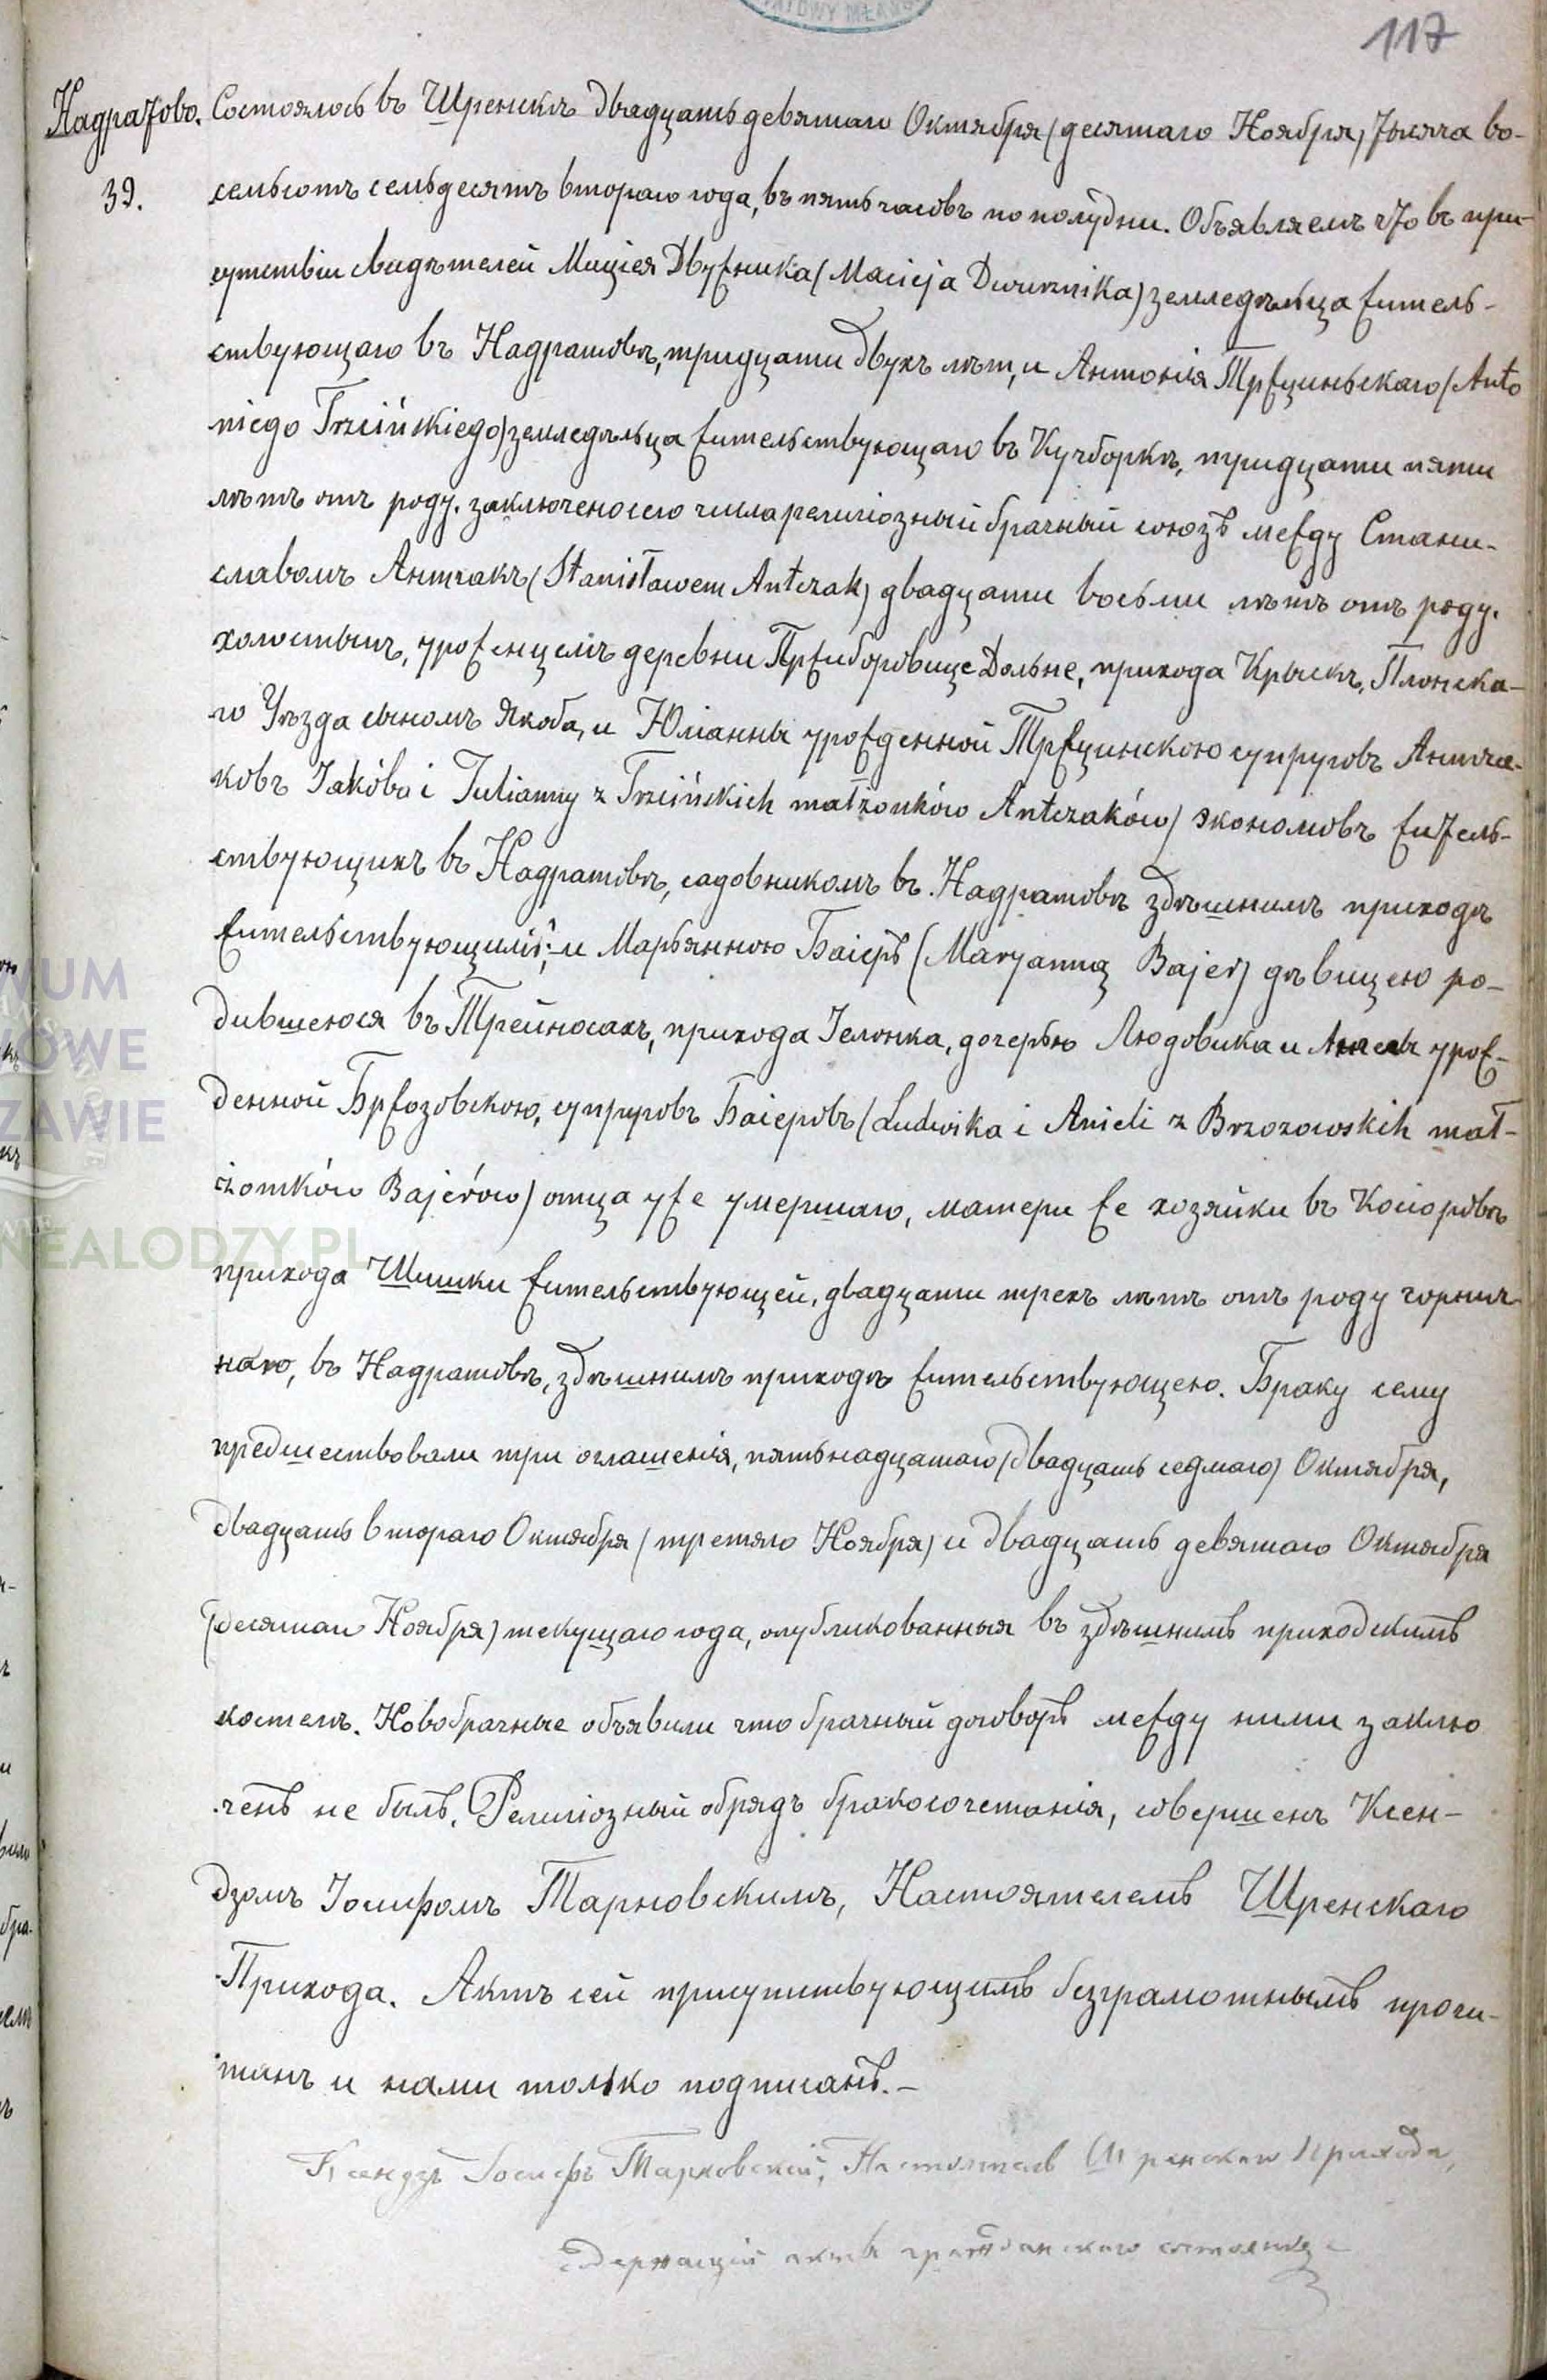 117
Надратово. Состоялось въ Шренскѣ двадцать девятаго Октября (десятаго Ноября) тысяча во-
39. семьсотъ семьдесятъ втораго года, въ пять часовъ по полудни. Объявляемъ что въ при-
сутствіи свидѣтелей Мацѣя Двуржника (Macieja Dwurznika) земледѣльца житель-
ствующаго въ Надратовѣ, тридцати двухъ лѣт, и Антонія Тржциньскаго (Anto
niego Trzcińskiego) земледѣльца жительствующаго въ Кучборкѣ, тридцати пяти
лѣтъ отъ роду. заключено сего числа религіозный брачный союзъ между Стани-
славомъ Антчакъ (Stanisławem Antczak) двадцати восьми лѣтъ отъ роду.
холостымъ, уроженцемъ деревни Пржиборовице Дольне, прихода Крыскъ, Плонска-
го Уѣзда сыномъ Якоба, и Юліанны урожденной Тржцинскою супруговъ Антча-
ковъ Jakóba i Julianny z Trzcińskich małżonków Antczaków) экономовъ житель-
ствующихъ въ Надратовѣ, садовникомъ въ Надратовѣ здѣшнимъ приходѣ
жительствующимъ; и Марьянною Баіеръ (Maryanną Bajer) дѣвицею ро-
дившеюся въ Трейносахъ, прихода Іелонка, дочерью Людовика и Анелѣ урож-
денной Бржозовскою, супруговъ Баіеровъ (Ludwika i Anieli z Brzozowskich mał-
żonków Bajerów) отца уже умершаго, матери же хозяйки въ Косіоровѣ
прихода Шишки жительствующей, двадцати трехъ лѣтъ отъ роду горнич
ною, въ Надратовѣ, здѣшнимъ приходѣ жительствующею. Браку сему
предшествовали три оглашенія, пятьнадцатаго (двадцать седмаго) Октября,
двадцать втораго Октября (третяго Ноября) и двадцать девятаго Октября
(десятаго Ноября) текущаго года, опубликованныя въ здѣшнимъ приходскимъ
костелѣ. Новобрачные объявили что брачный договоръ между ними заклю
ченъ не былъ. Религіозный обрядъ бракосочетанія, совершенъ Ксен-
дзомъ Іосифомъ Тарновскимъ, Настоятелемъ Шренскаго
Прихода. Актъ сей присутствующимъ безграмотнымъ прочи-
танъ и нами только подписанъ.-
Ксендзъ Іосифъ Тарновскій, Настоятель Шренскаго Прихода,
содержащій акты гражданскаго состоянія
WUM
OWE
ZAWIE
NEALODZY.PL